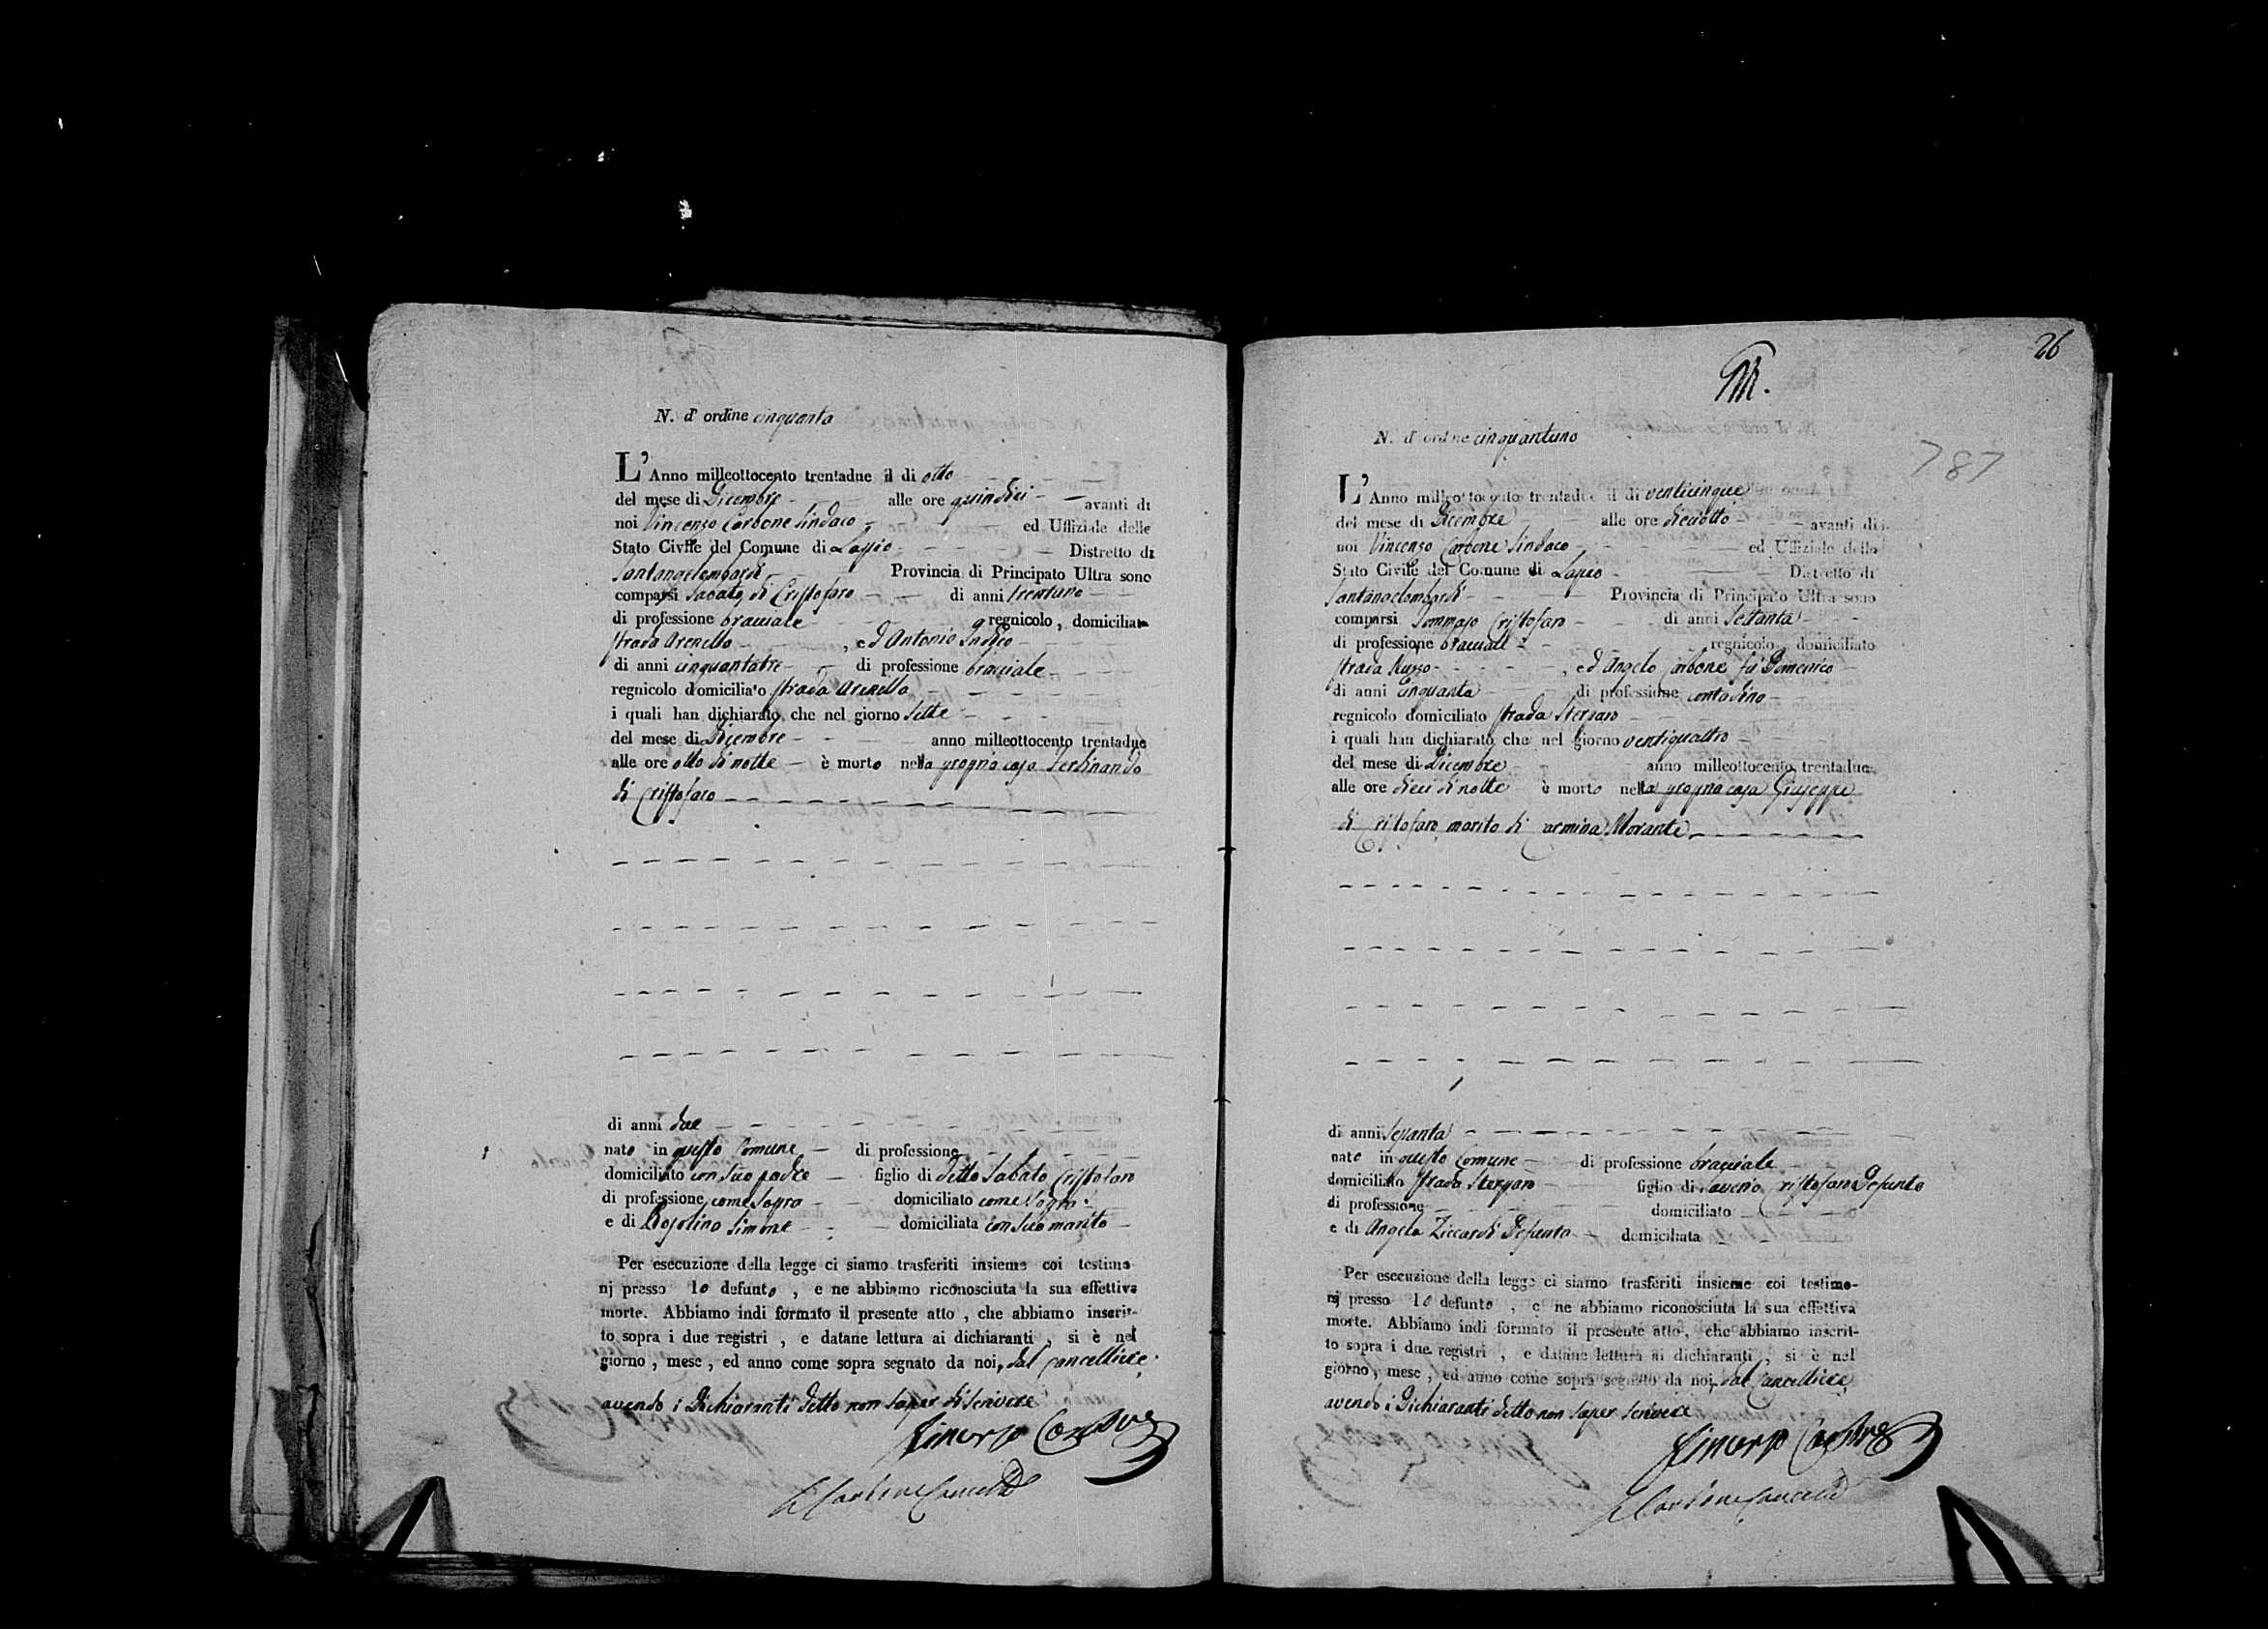 N. d'ordine cinquanta
L'Anno milleottocento trentadue il di otto
del mese di Dicembre alle ore quindici avanti di
noi Vincenzo Carbone Sindaco ed Uffiziale dello
Stato Civile del Comune di Lapio Distretto di
Santangelombardi Provincia di Principato Ultra sono
comparsi Sabato di Cristofaro di anni trentuno
di professione bracciale regnicolo, domiciliato
strada Arenella, ed Antonio
di anni cinquantatre di professione bracciale
regnicolo domiciliato strada Arenella
i quali han dichiarato, che nel giorno sette
del mese di Dicembre anno milleottocento trentadue
alle ore otto di notte è morto nella propria casa Ferdinando
di Cristofaro
di anni due
nato in questo Comune di professione
domiciliato con suo padre figlio di detto Sabato Cristofaro
di professione come sopra domiciliato come sopra
e di Rosolina Simone domiciliata con suo marito
Per esecuzione della legge ci siamo trasferiti insieme coi testimo
nj presso lo defunto, e ne abbiamo riconosciuta la sua effettiva
morte. Abbiamo indi formato il presente atto, che abbiamo inserit-
to sopra i due registri, e datane lettura ai dichiaranti, si è nel
giorno, mese, ed anno come sopra segnato da noi, dal Cancelliere
avendo i Dichiaranti detto non saper di scrivere
Vincenzo Carbone
Carbone Cancell
26
787
N. d'ordine cinquantuno
L'Anno milleottocento trentadue il di venticinque
del mese di Dicembre alle ore dieciotto avanti di
noi Vincenzo Carbone Sindaco ed Uffiziale dello
Stato Civile del Comune di Lapio Distretto di
Santangelombardi Provincia di Principato Ultra sono
comparsi Tommaso Cristofaro di anni settanta
di professione bracciale regnicolo domiciliato
strada Russo, ed Angelo Carbone fu Domenico
di anni cinquanta di professione contadino
regnicolo domiciliato strada
i quali han dichiarato, che nel giorno ventiquattro
del mese di Dicembre anno milleottocento trentadue
alle ore dieci di notte è morto nella propria casa Giuseppe
di Cristofaro marito di Carmina Morante
di anni
nato in questo Comune di professione bracciale
domiciliato strada figlio di Saverio Cristofaro Defunto
di professione domiciliato
e di Angela Ziccardi Defunta domiciliata
Per esecuzione della legge ci siamo trasferiti insieme coi testimo-
nj presso lo defunto, e ne abbiamo riconosciuta la sua effettiva
morte. Abbiamo indi formato il presente atto, che abbiamo inserit-
to sopra i due registri, e datane lettura ai dichiaranti, si è nel
giorno, mese, ed anno come sopra segnato da noi, dal Cancelliere
avendo i Dichiaranti detto non saper scrivere
Vincenzo Carbone
Carbone Cancell